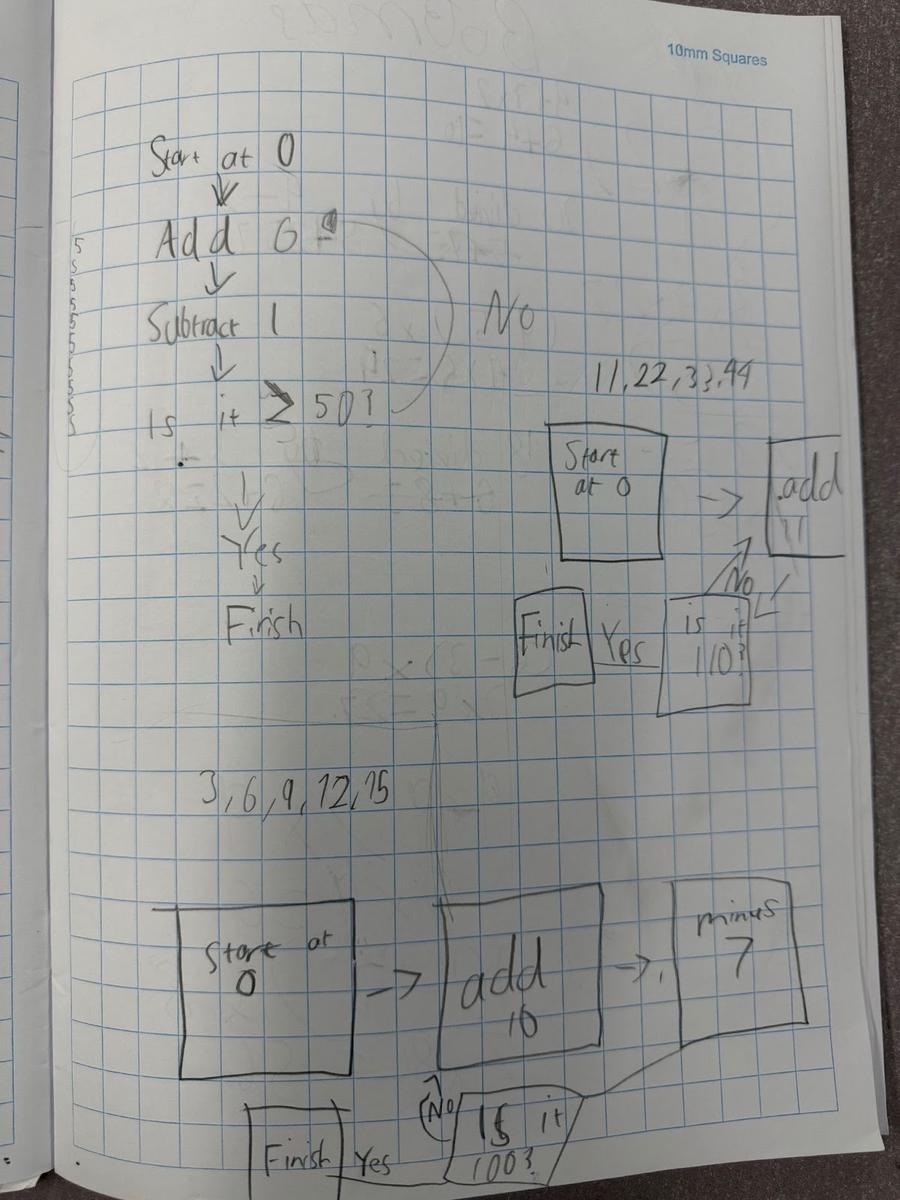 10mm Squares
Start at 0
Add 6
Subtract 1
Is it ≥ 50?
No
Yes
Finish
5
5
5
5
5
5
5
5
5
5
11, 22, 33, 44
Start
at 0
add
11
No
is it
110?
Yes
Finish
3, 6, 9, 12, 15
Start at
0
add
10
minus
7
No
Is it
100?
Yes
Finish